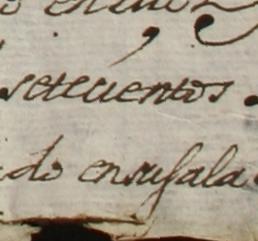 setecientos
do ensu sala